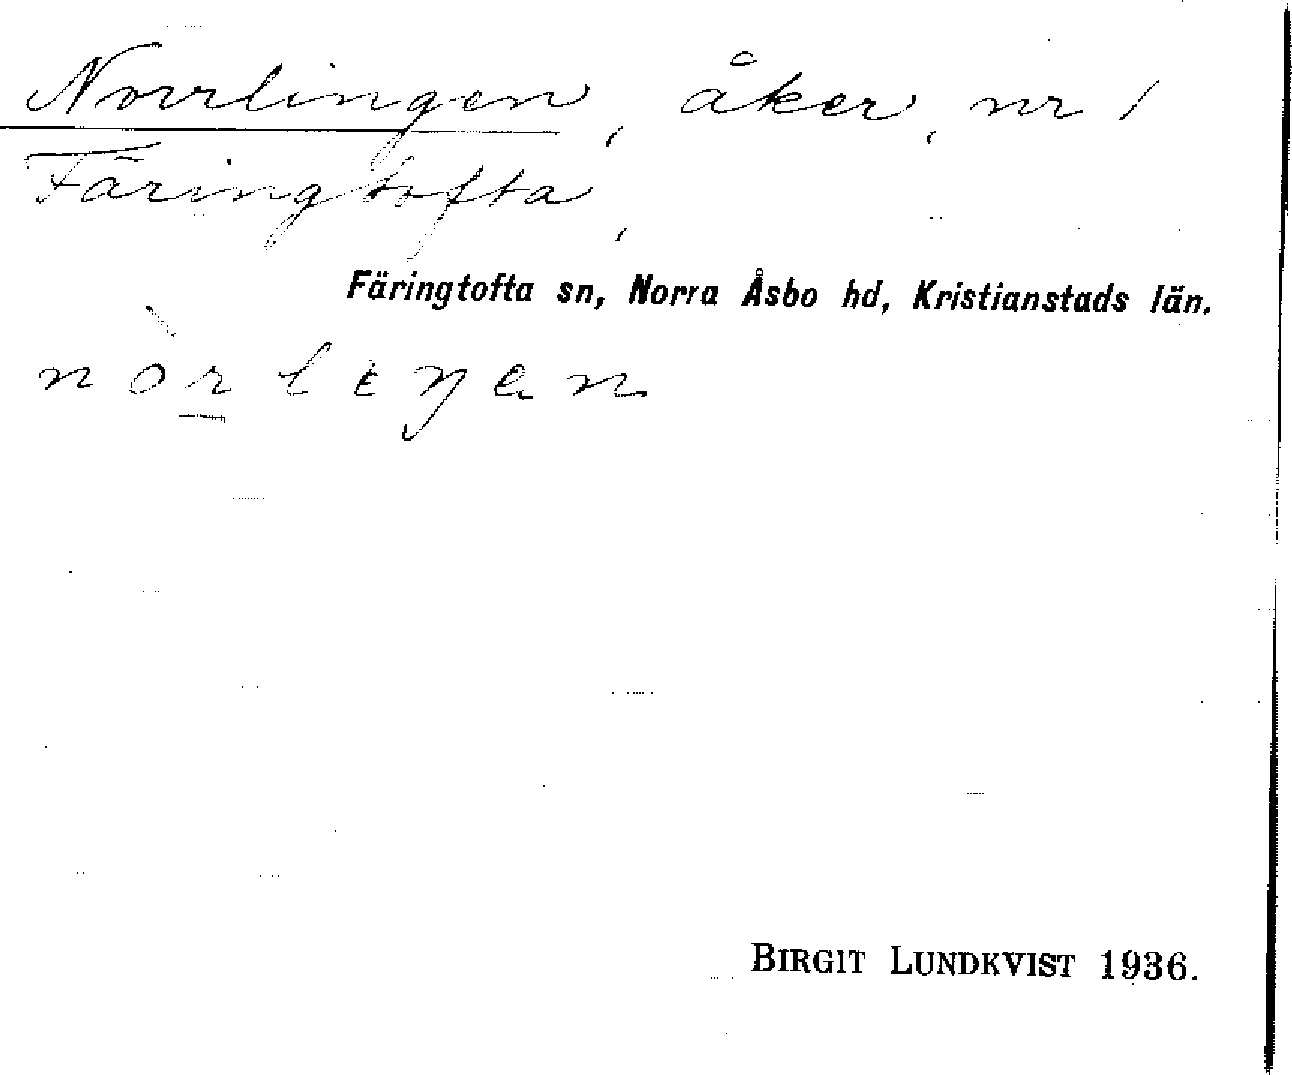 Norrlingen, åker, nr 1
Färingtofta,
Färingtofta sn, Norra Åsbo hd, Kristianstads län.
nòr̲lıŋen
BIRGIT LUNDKVIST 1936.